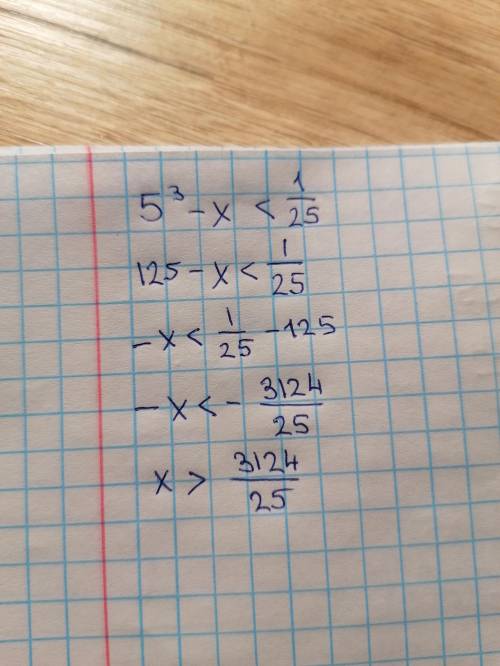 5³ - x < 1/25
125 - x < 1/25
- x < 1/25 - 125
- x < - 3124/25
x > 3124/25